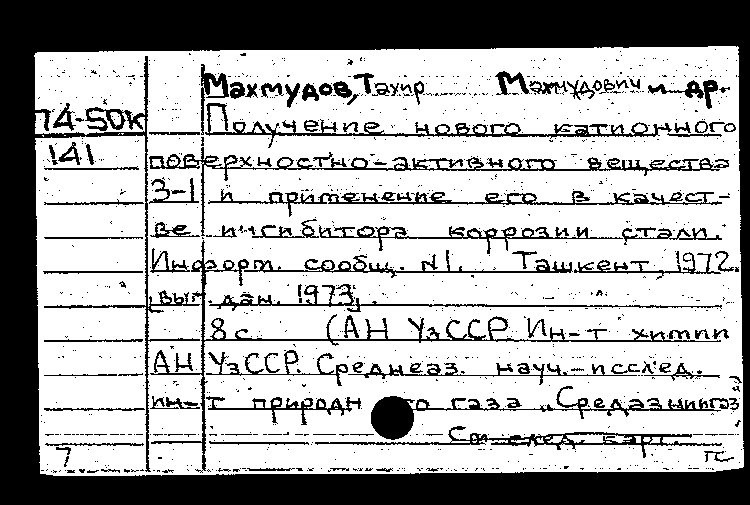 Махмудов, Тахир Махмудович и др.
74-50к Получение нового катионного
141 поверхностно-активного вещества
З-1 и применение его в качест-
ве ингибитора коррозии стали.
Информ. сообщ. №1. Ташкент, 1972.
[вып. дан. 1973].
8 с. (АН УзССР. Ин-т химии
АН УзССР. Среднеаз. науч.-исслед.
ин-т природн го газа „Средазниигаз"
См след. карт.
7 гс